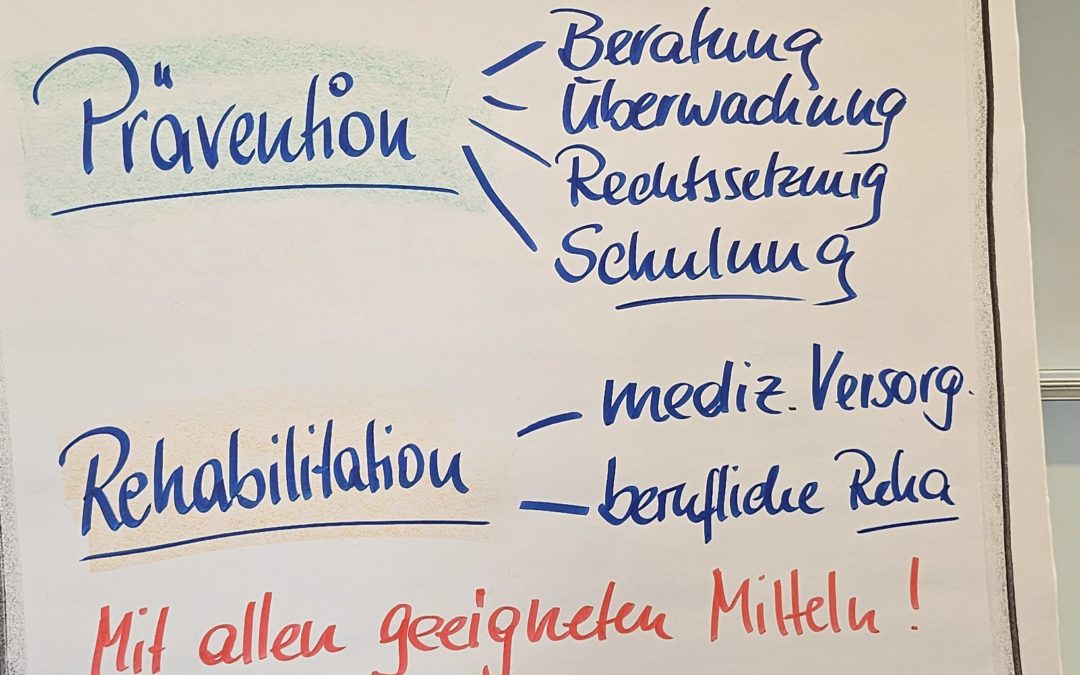 Prävention
Beratung
Überwachung
Rechtssetzung
Schulung
Rehabilitation
mediz. Versorg.
berufliche Reha
Mit allen geeigneten Mitteln!